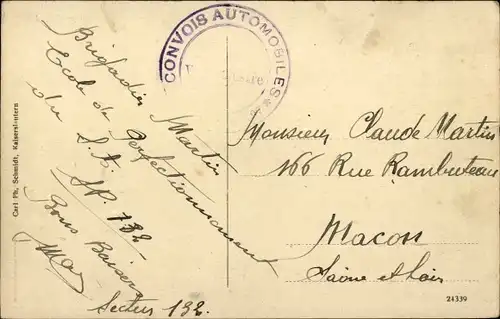 CONVOIS AUTOMOBILES *
Brigadier Martin
Ecole de Perfectionnement
du S.A.
SP. 132
Bons Baisers
Secteur 132.
Monsieur Claude Martin
166 Rue Rambuteau
Macon
Saône et Loire
Carl Ph. Schmidt, Kaiserslautern
24339